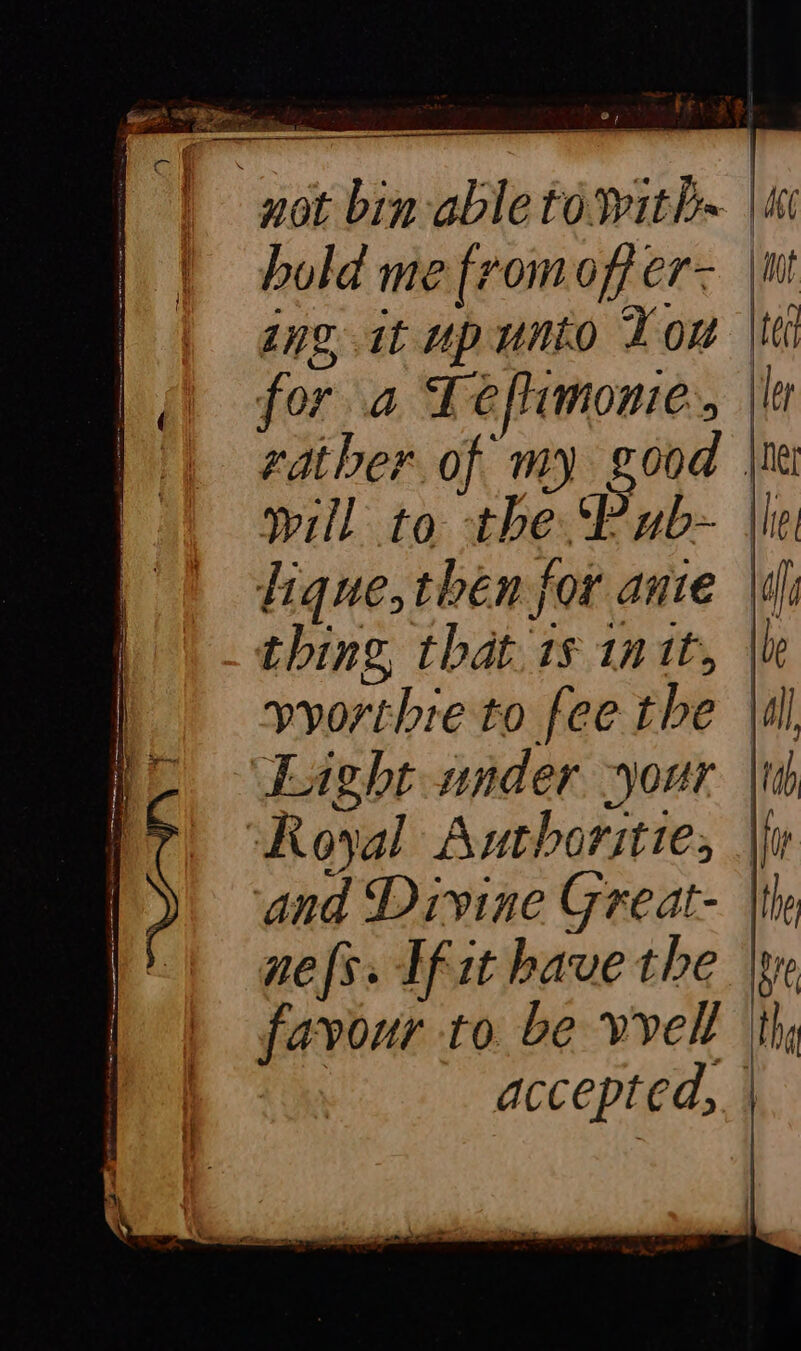 not bin able to with-
hold me from offer-
ing it up unto You
for a Teſtimonie,
rather of my good
will to the Pub-
lique, then for anie
thing that is in it,
vvorthie to ſee the
Light under your
Royal Authoritie,
and Divine Great-
neſs. If it have the
favour to be vvell
accepted,